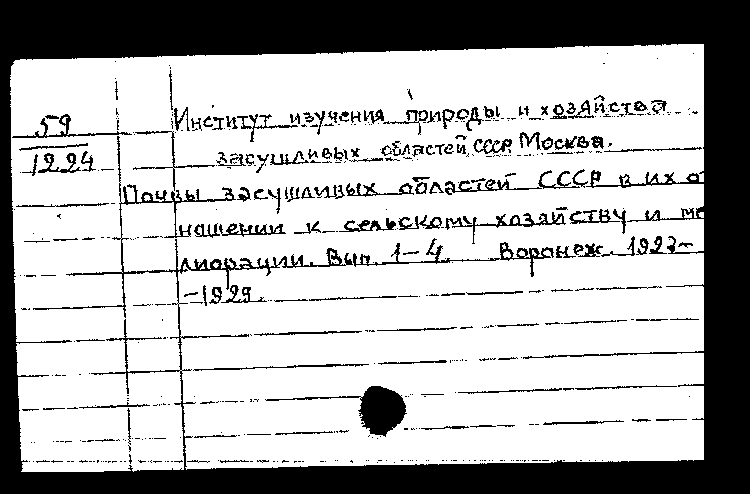 59
1224
Институт изучения природы и хозяйства
засушливых областей СССР. Москва.
Почвы засушливых областей СССР в их о
ношении к сельскому хозяйству и ме
лиорации. Вып. 1-4. Воронеж. 1927-
-1929.